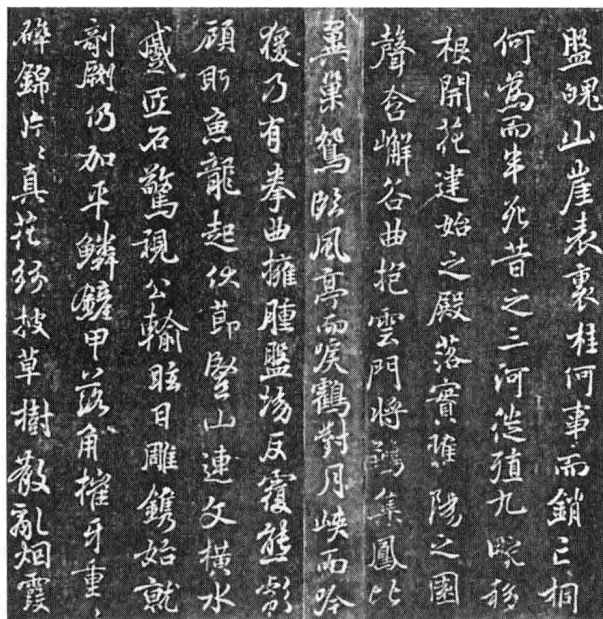 盤魄山崖表裏桂何事而銷亡桐
何為而半死昔之三河徙殖九畹移
根開花建始之殿落實睢陽之園
聲含嶰谷曲抱雲門將鶵集鳳比
翼巢鴛臨風亭而唳鶴對月峽而吟
猨乃有拳曲擁腫盤坳反覆熊彪
顧盼魚龍起伏節豎山連文橫水
蹙匠石驚視公輸眩目雕鐫始就
剞劂仍加平鱗鏟甲落角摧牙重〻
碎錦片〻真花紛披草樹散亂烟霞